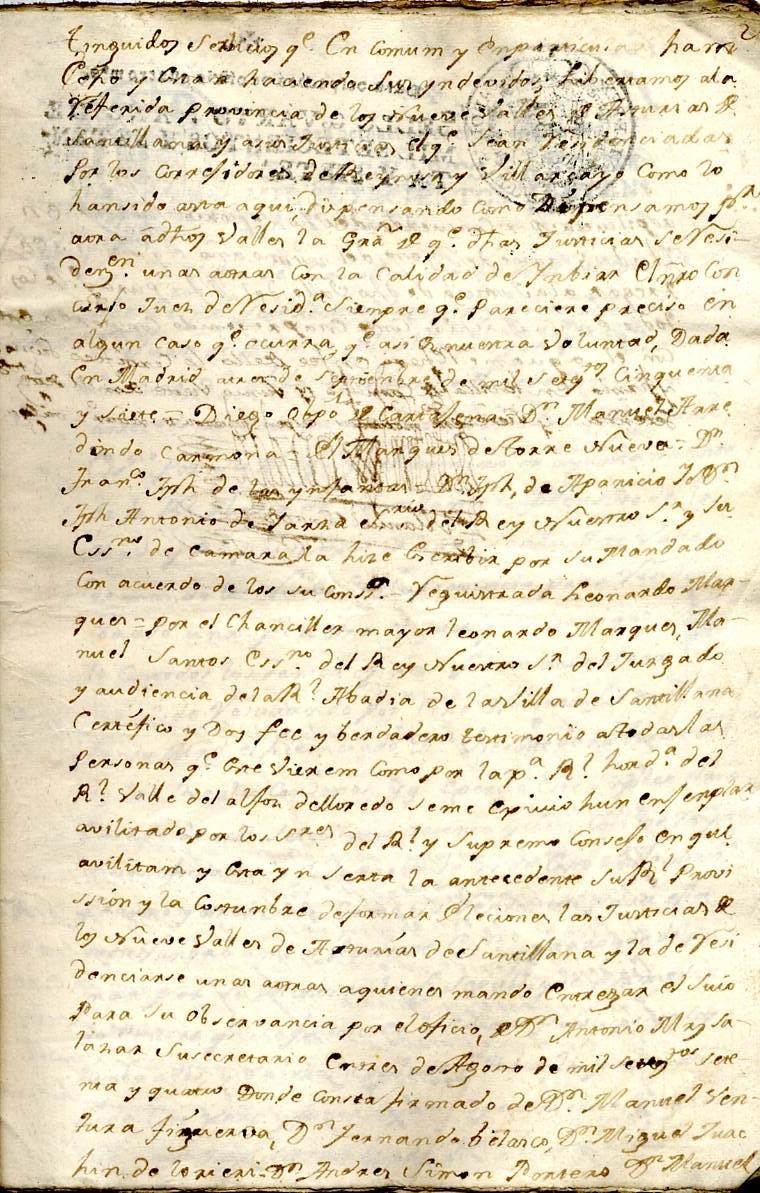 2
tinguidos serbicios qe. En Comum y En particular ham
Echo y Estan haciendo Sus yndevidos, Libertamos ala
Referida provincia de los Nueve Valles de Asturias de
Santillana y asus Justicias el qe. Sean Residenciadas
por los Correxidores de Reynosa y Villarcayo Como lo
hansido asta aqui, dispensando como Dispensamos pra
aora a dhos Valles la Gra. de qe. dhas Justicias se Resi-
denen. unas aotras Con la Calidad de Imbiar El nro Con
sexo Juez de Resida. Siempre qe. Pareciere preciso en
algun Caso qe. ocurra, qe. asi Es nuestra Voluntad, Dada
En Madrid atres de Septiembre de mil setezos Cinquenta
y Siete = Diego Obpo de Cartajena = Dn. Manuel Arre
dindo Carmona = El Marques de Torre Nueva = Dn.
Franco. Jph de las ynfantas = Dn. Jph, de Aparicio Yo Dn.
Jph Antonio de Yarza esrivo del Rey Nuestro Sr. y su
Essno. de Camara la hize Escribir por su Mandado
Con acuerdo de los su Conso. = Reguistrada Leonardo Mar-
ques = por el Chanciller mayor Leonardo Marques, Ma-
nuel Santos Essno. del Rey Nuestro Sr. del Juzgado
y audiencia de la Rl. Abadia de la Villa de Santillana
Certéfico y Doy fee y berdadero testimonio a todas las
Personas qe. Este Vierem Como por la pa. Rl. horda. del
Rl. Valle del alfoz delloredo seme Exivio hun ensenplar
avilitado por los sres del Rl. y Supremo Consejo en qe.
avilitam y Esta yn serta la antecedente su Rl. Provi
ssión y la Costunbre de formar Eleciones las Justicias de
los Nueve Valles de Asturias de Santillana y la de Resi
denciarse unas aotras aquienes mando Entregar el Suio
Para su Observancia por el oficio, de Dn. Antonio Mrz Sa-
lazar Susecretario Entres de Agosto de mil setezos sete-
nta y quatro Donde Consta firmado de Dn. Manuel Ven-
tura figueroa, Dn. Fernando belasco, Dn. Miguel Juac
hin de lorieri = Dn. Andres Simon Pontero Dn. Manuel